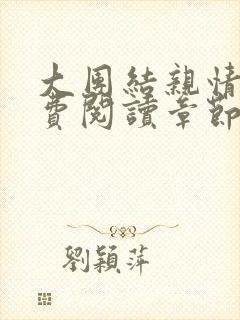 大團結親情
費閱讀章節
劉穎萍